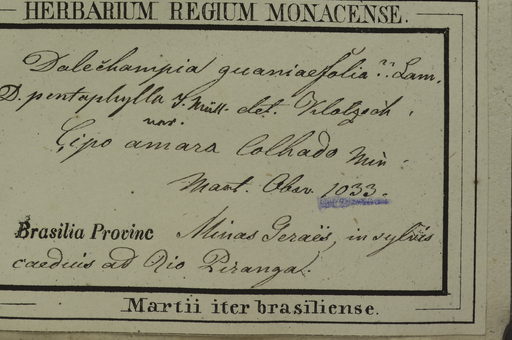 HERBARIUM REGIUM MONACENSE.
Dalechampia guaniaefolia Lam.
D. pentaphylla J. Müll. det. Klotzsch.
var.
Çipo amara Colhado Min.
Mart. Obsv. 1033.
Brasilia Provinc Minas Geraës, in sylvis
caeduis ad Rio Piranga.
Martii iter brasiliense.